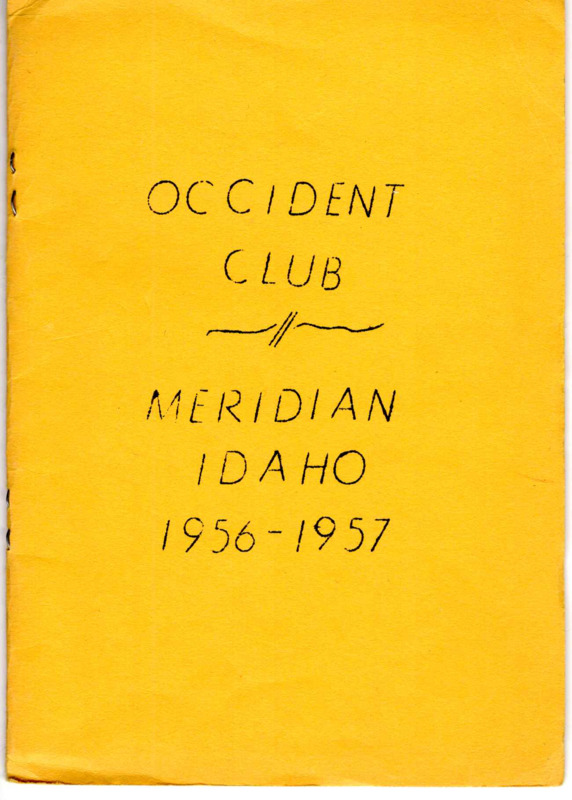 OCCIDENT
CLUB
MERIDIAN
IDAHO
1956-1957